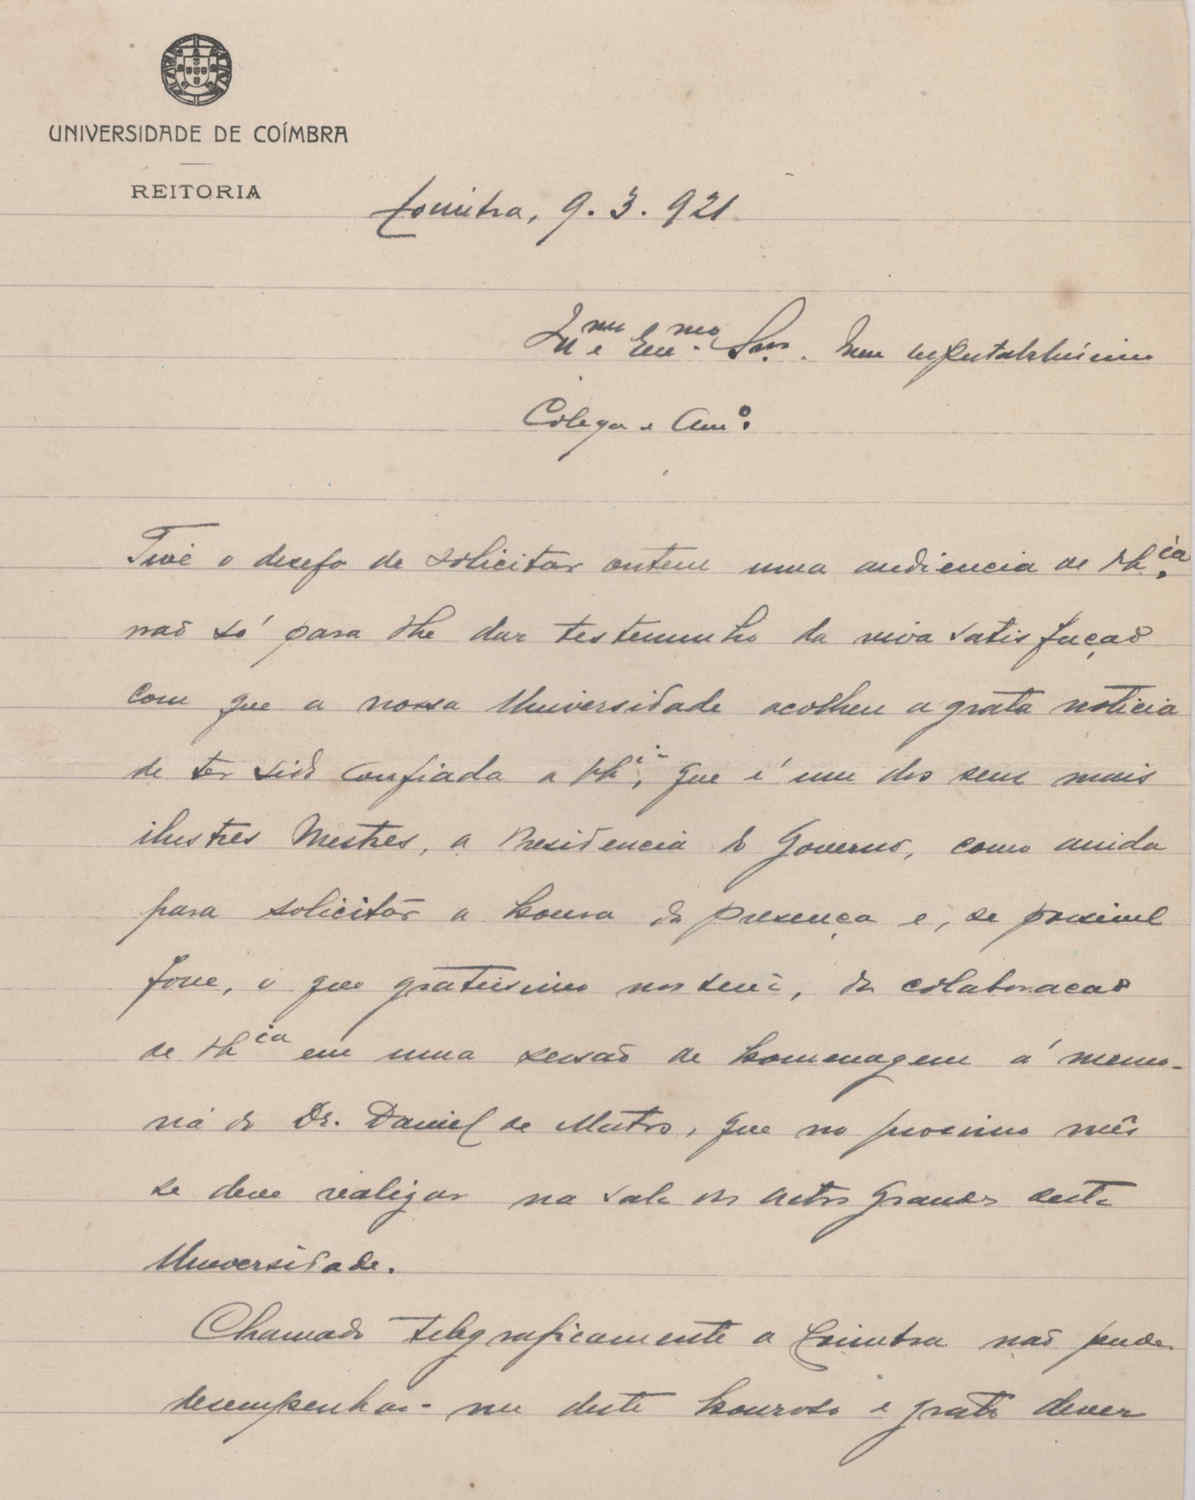 UNIVERSIDADE DE COÍMBRA
REITORIA
Coimbra, 9.3.921
Il.mo e Exc.mo Snr. Meu respeitabilissimo
Colega e Am.º
Tive o desejo de solicitar ontem uma audiencia de Vh.cia
não só para lhe dar testemunho da viva satisfação
com que a nossa Universidade acolheu a grata noticia
de ter sido confiada a Vh.cia, que é um dos seus mais
ilustres Mestres, a Presidencia do Governo, como ainda
para solicitar a honra da presença e, se possivel
fosse, o que gratissimo nos seria, da colaboração
de Vh.cia em uma sessão de homenagem á memo-
ria do Dr. Daniel de Matos, que no proximo mês
se deve realizar na sala dos Actos Grandes desta
Universidade.
Chamado telegraficamente a Coimbra não pude
desempenhar-me deste honroso e grato dever